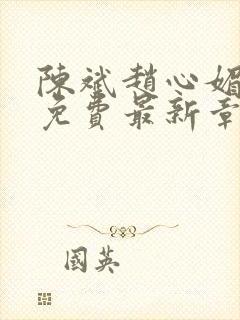 陳斌趙心媚
免費最新章
國英